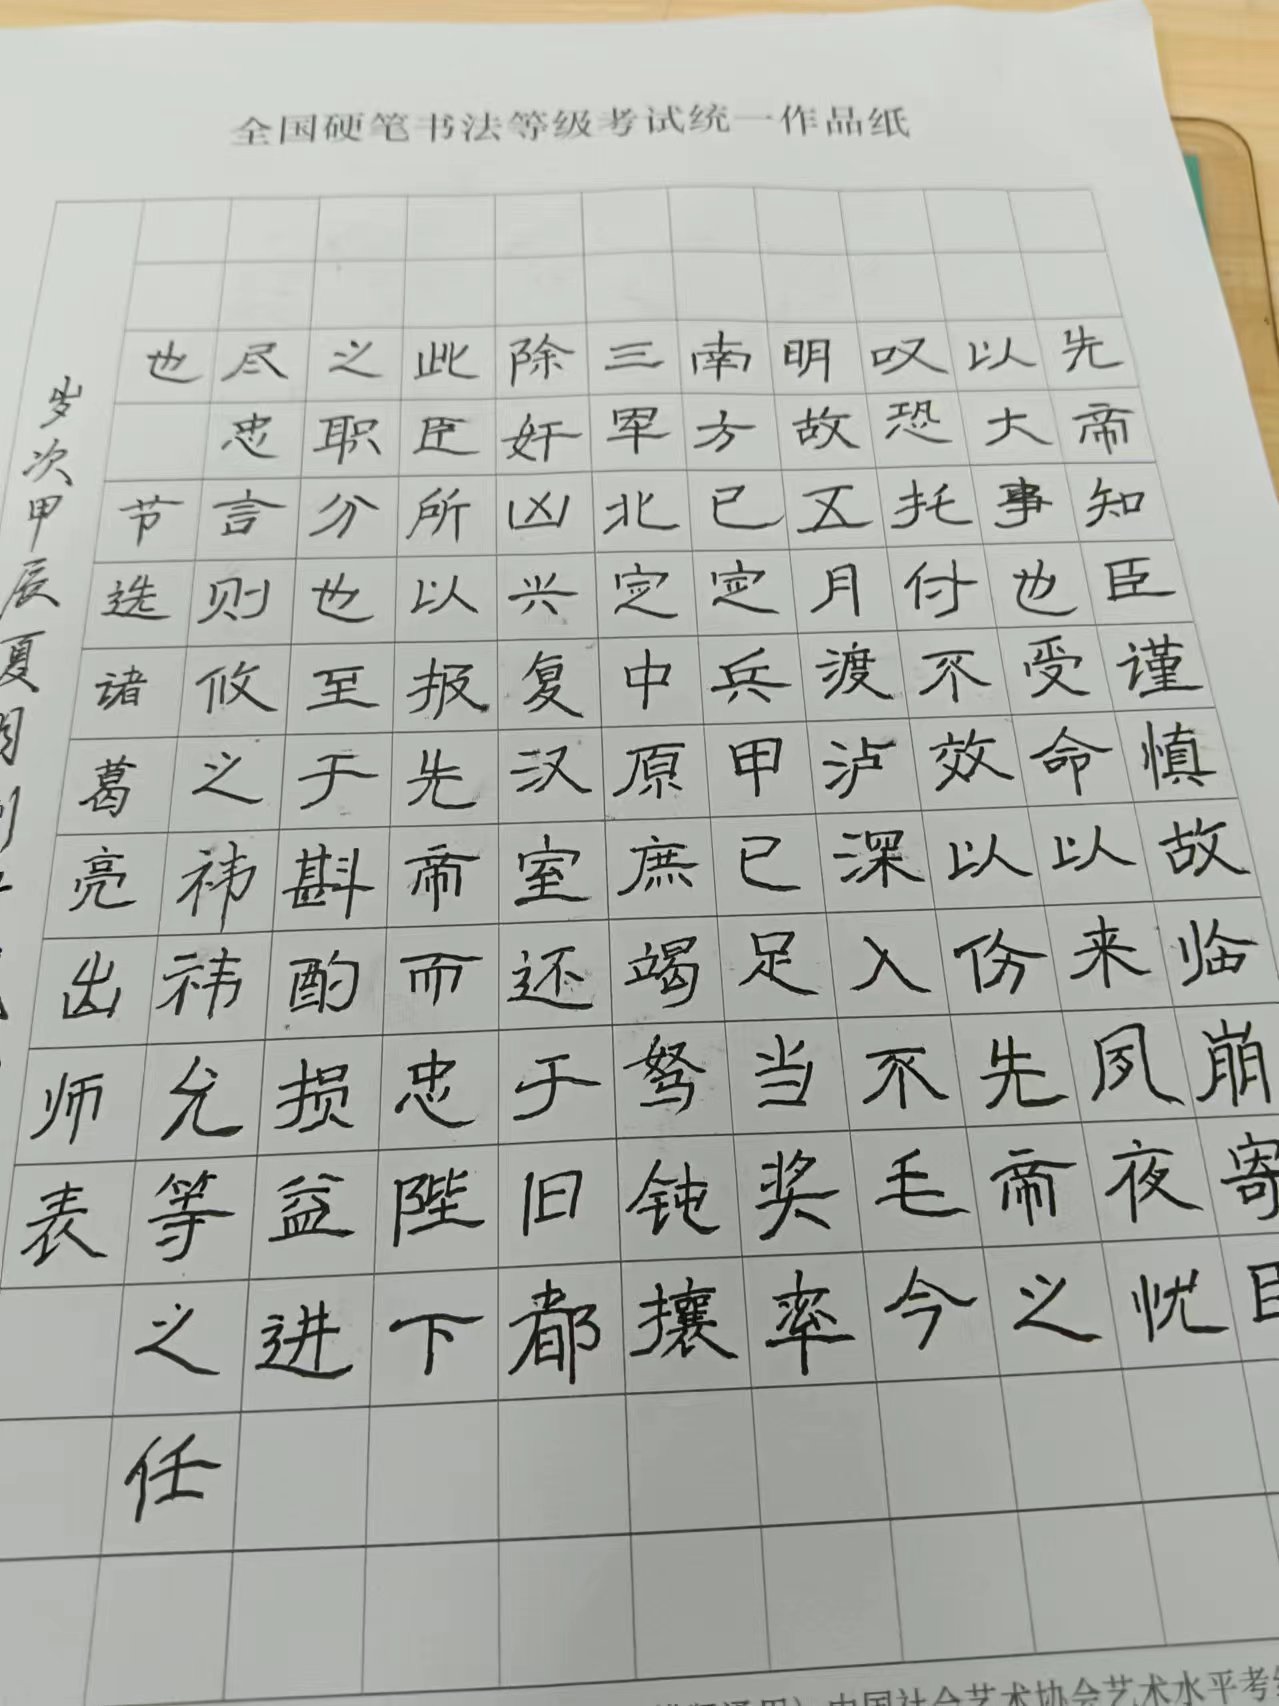 全国硬笔书法等级考试统一作品纸
先帝知臣谨慎故临崩寄臣
以大事也受命以来夙夜忧
叹恐托付不效以伤先帝之
明故五月渡泸深入不毛今
南方已定兵甲已足当奖率
三军北定中原庶竭驽钝攘
除奸凶兴复汉室还于旧都
此臣所以报先帝而忠陛下
之职分也至于斟酌损益进
尽忠言则攸之祎祎允等之任
也 节选诸葛亮出师表
岁次甲辰夏
中国社会艺术协会艺术水平考